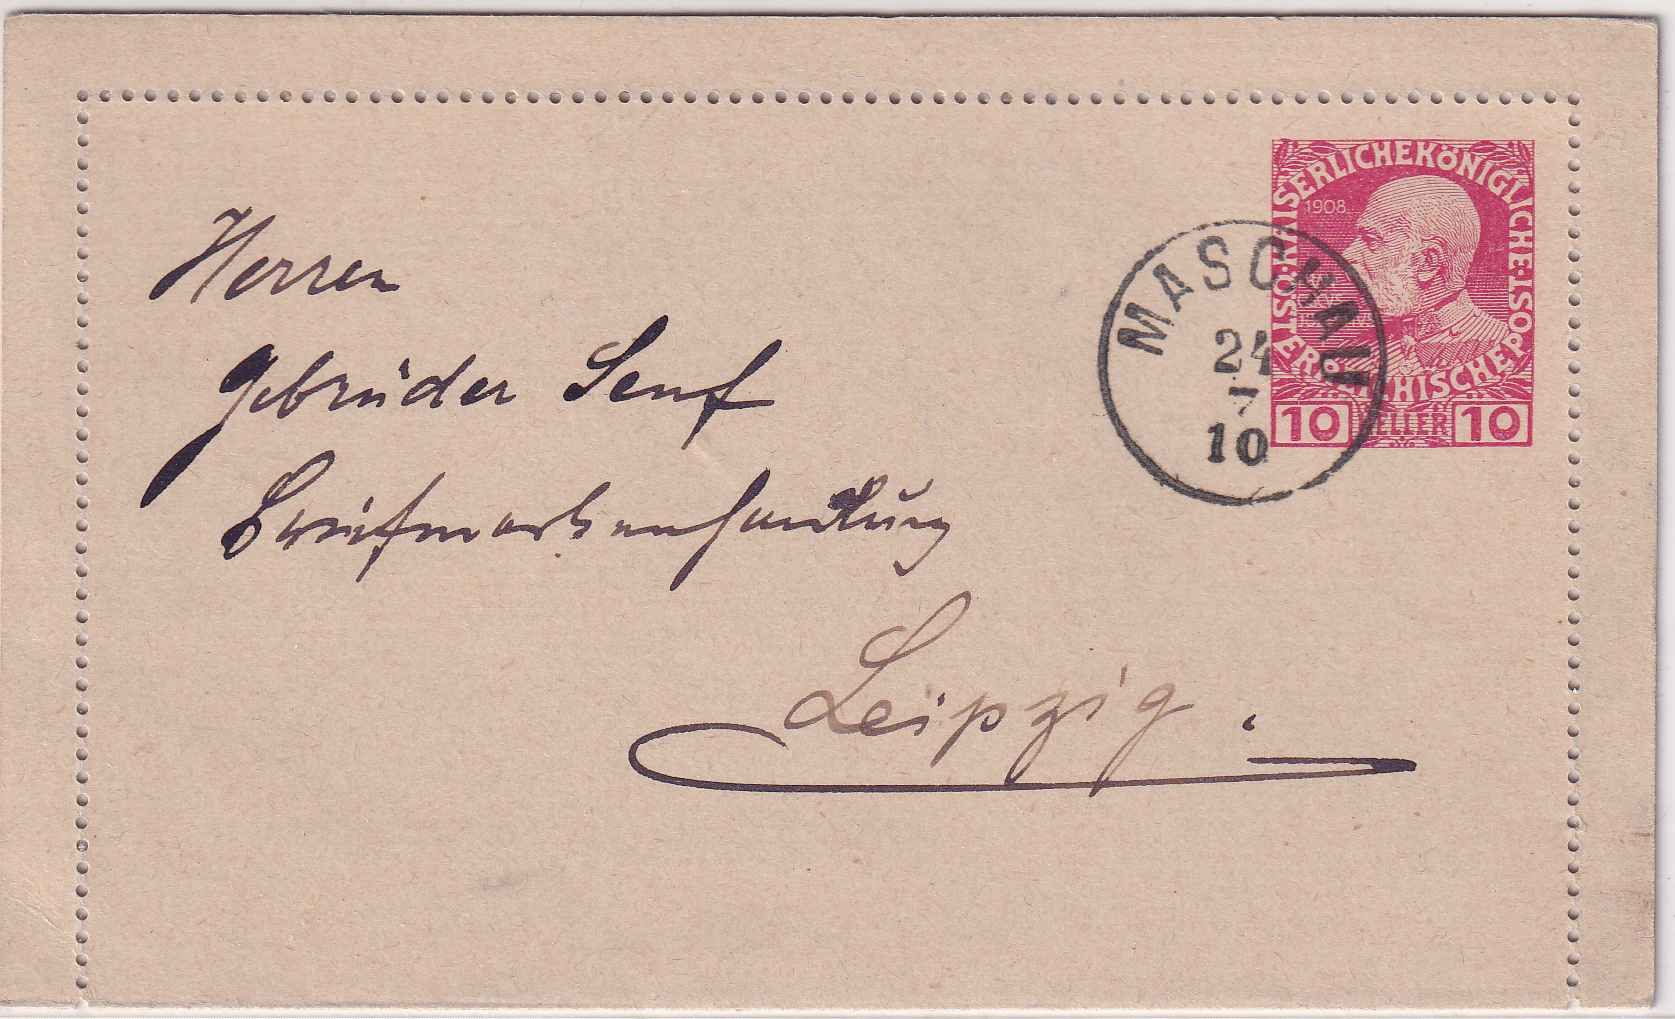 KAISERLICHE KÖNIGLICHE
ÖSTERREICHISCHE POST
1908
10 HELLER 10
MASCHAU
24
7
10
Herren
Gebrüder Senf
Briefmarkenhandlung
Leipzig.